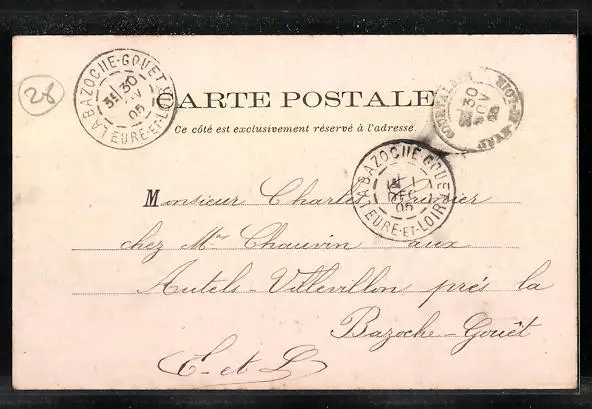 28
LA BAZOCHE-GOUET
30
05
EURE-ET-LOIR
CARTE POSTALE
Ce côté est exclusivement réservé à l'adresse.
30
NOV
LA BAZOCHE-GOUET
DEC
05
EURE-ET-LOIR
Monsieur Charles
chez Mr Chauvin aux
Autels-Villevillon près la
Bazoche-Gouët
E-et L